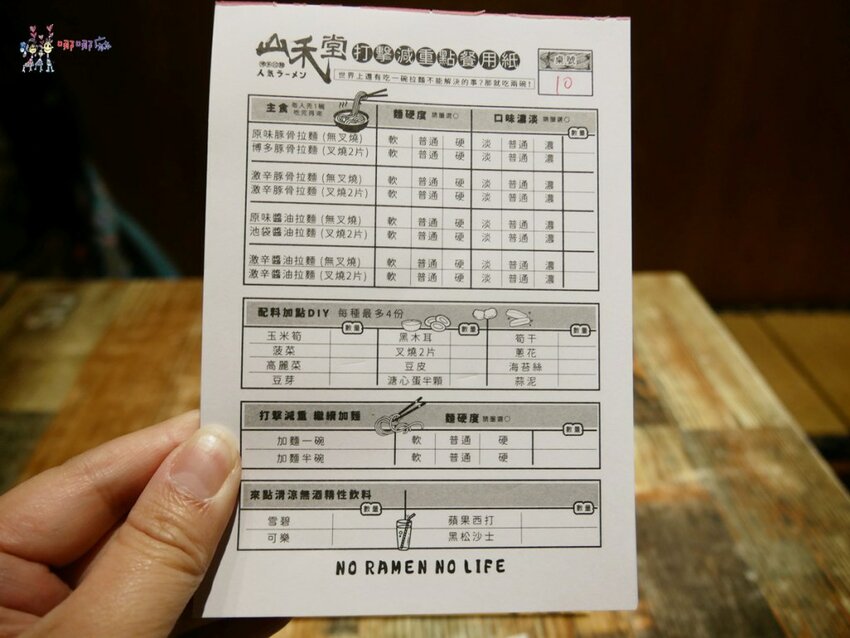 哪哪麻
山禾堂 打擊減重點餐用紙 桌號
人気ラーメン 世界上還有吃一碗拉麵不能解決的事?那就吃兩碗! 10
主食 每人先1碗 麵硬度 請圈選○ 口味濃淡 請圈選○ 數量
原味豚骨拉麵 (無叉燒) 軟 普通 硬 淡 普通 濃
博多豚骨拉麵 (叉燒2片) 軟 普通 硬 淡 普通 濃
激辛豚骨拉麵 (無叉燒) 軟 普通 硬 淡 普通 濃
激辛豚骨拉麵 (叉燒2片) 軟 普通 硬 淡 普通 濃
原味醬油拉麵 (無叉燒) 軟 普通 硬 淡 普通 濃
池袋醬油拉麵 (叉燒2片) 軟 普通 硬 淡 普通 濃
激辛醬油拉麵 (無叉燒) 軟 普通 硬 淡 普通 濃
激辛醬油拉麵 (叉燒2片) 軟 普通 硬 淡 普通 濃
配料加點DIY 每種最多4份 數量 數量 數量
玉米筍 黑木耳 筍干
菠菜 叉燒2片 蔥花
高麗菜 豆皮 海苔絲
豆芽 溏心蛋半顆 蒜泥
打擊減重 繼續加麵 麵硬度 請圈選○ 數量
加麵一碗 軟 普通 硬
加麵半碗 軟 普通 硬
來點清涼無酒精性飲料 數量 數量
雪碧 蘋果西打
可樂 黑松沙士
NO RAMEN NO LIFE